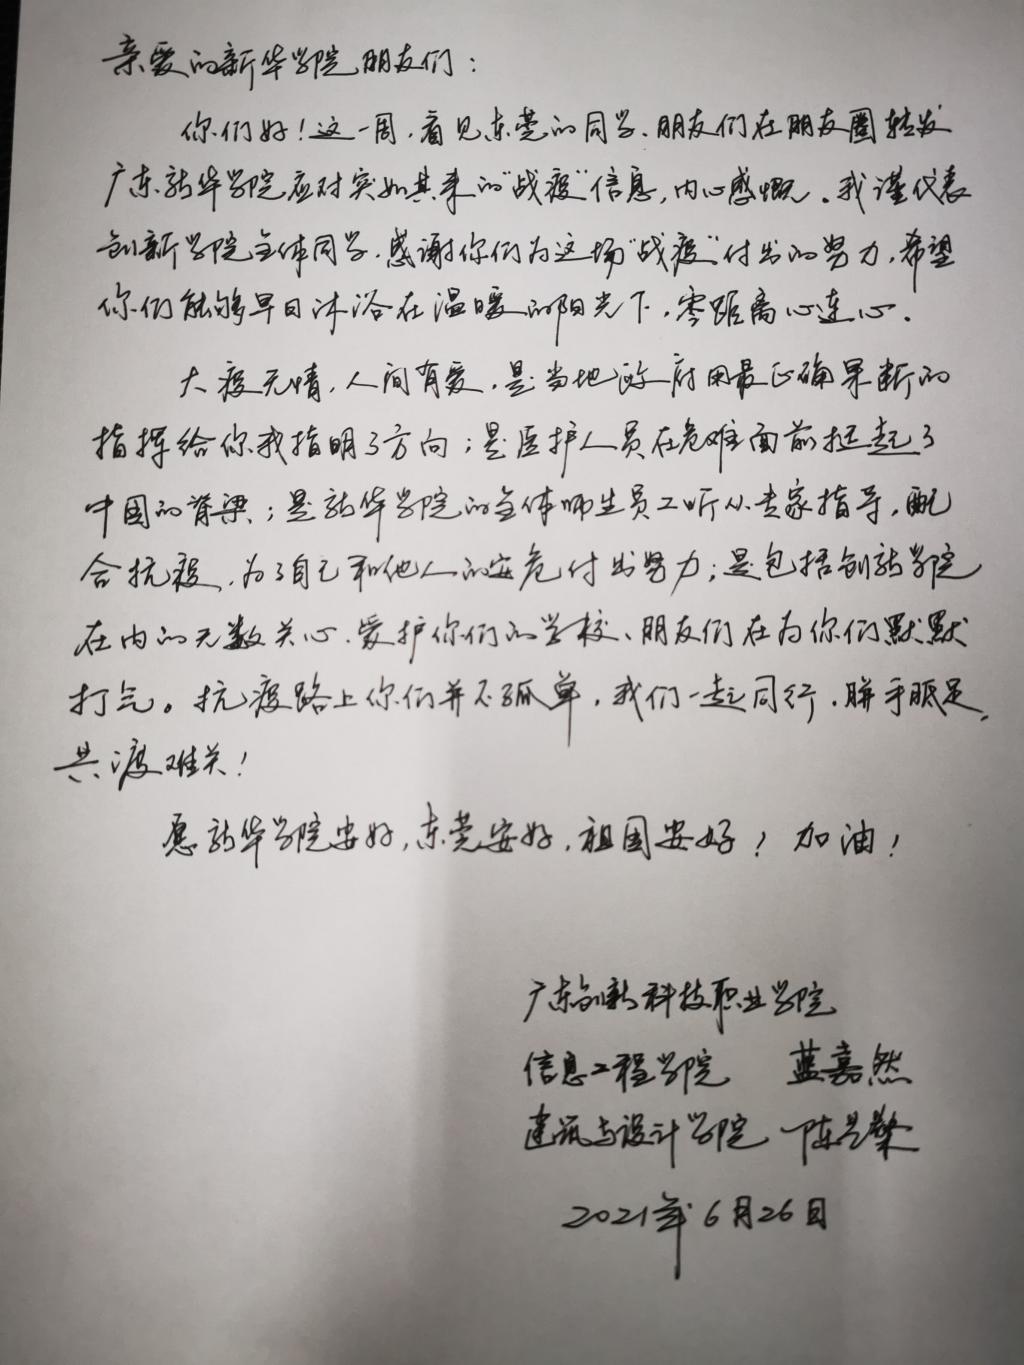 亲爱的新华学院朋友们：
你们好！这一周，看见东莞的同学、朋友们在朋友圈转发
广东新华学院应对突如其来的“战疫”信息，内心感慨。我谨代表
创新学院全体同学，感谢你们为这场“战疫”付出的努力，希望
你们能够早日沐浴在温暖的阳光下，零距离心连心。
大疫无情，人间有爱，是当地政府用最正确果断的
指挥给你我指明了方向；是医护人员在危难面前挺起了
中国的脊梁；是新华学院的全体师生员工听从专家指导，配
合抗疫，为了自己和他人的安危付出努力；是包括创新学院
在内的无数关心、爱护你们的学校、朋友们在为你们默默
打气。抗疫路上你们并不孤单，我们一起同行，胼手胝足，
共渡难关！
愿新华学院安好，东莞安好，祖国安好！加油！
广东创新科技职业学院
信息工程学院 蓝嘉然
建筑与设计学院 陈
2021年6月26日